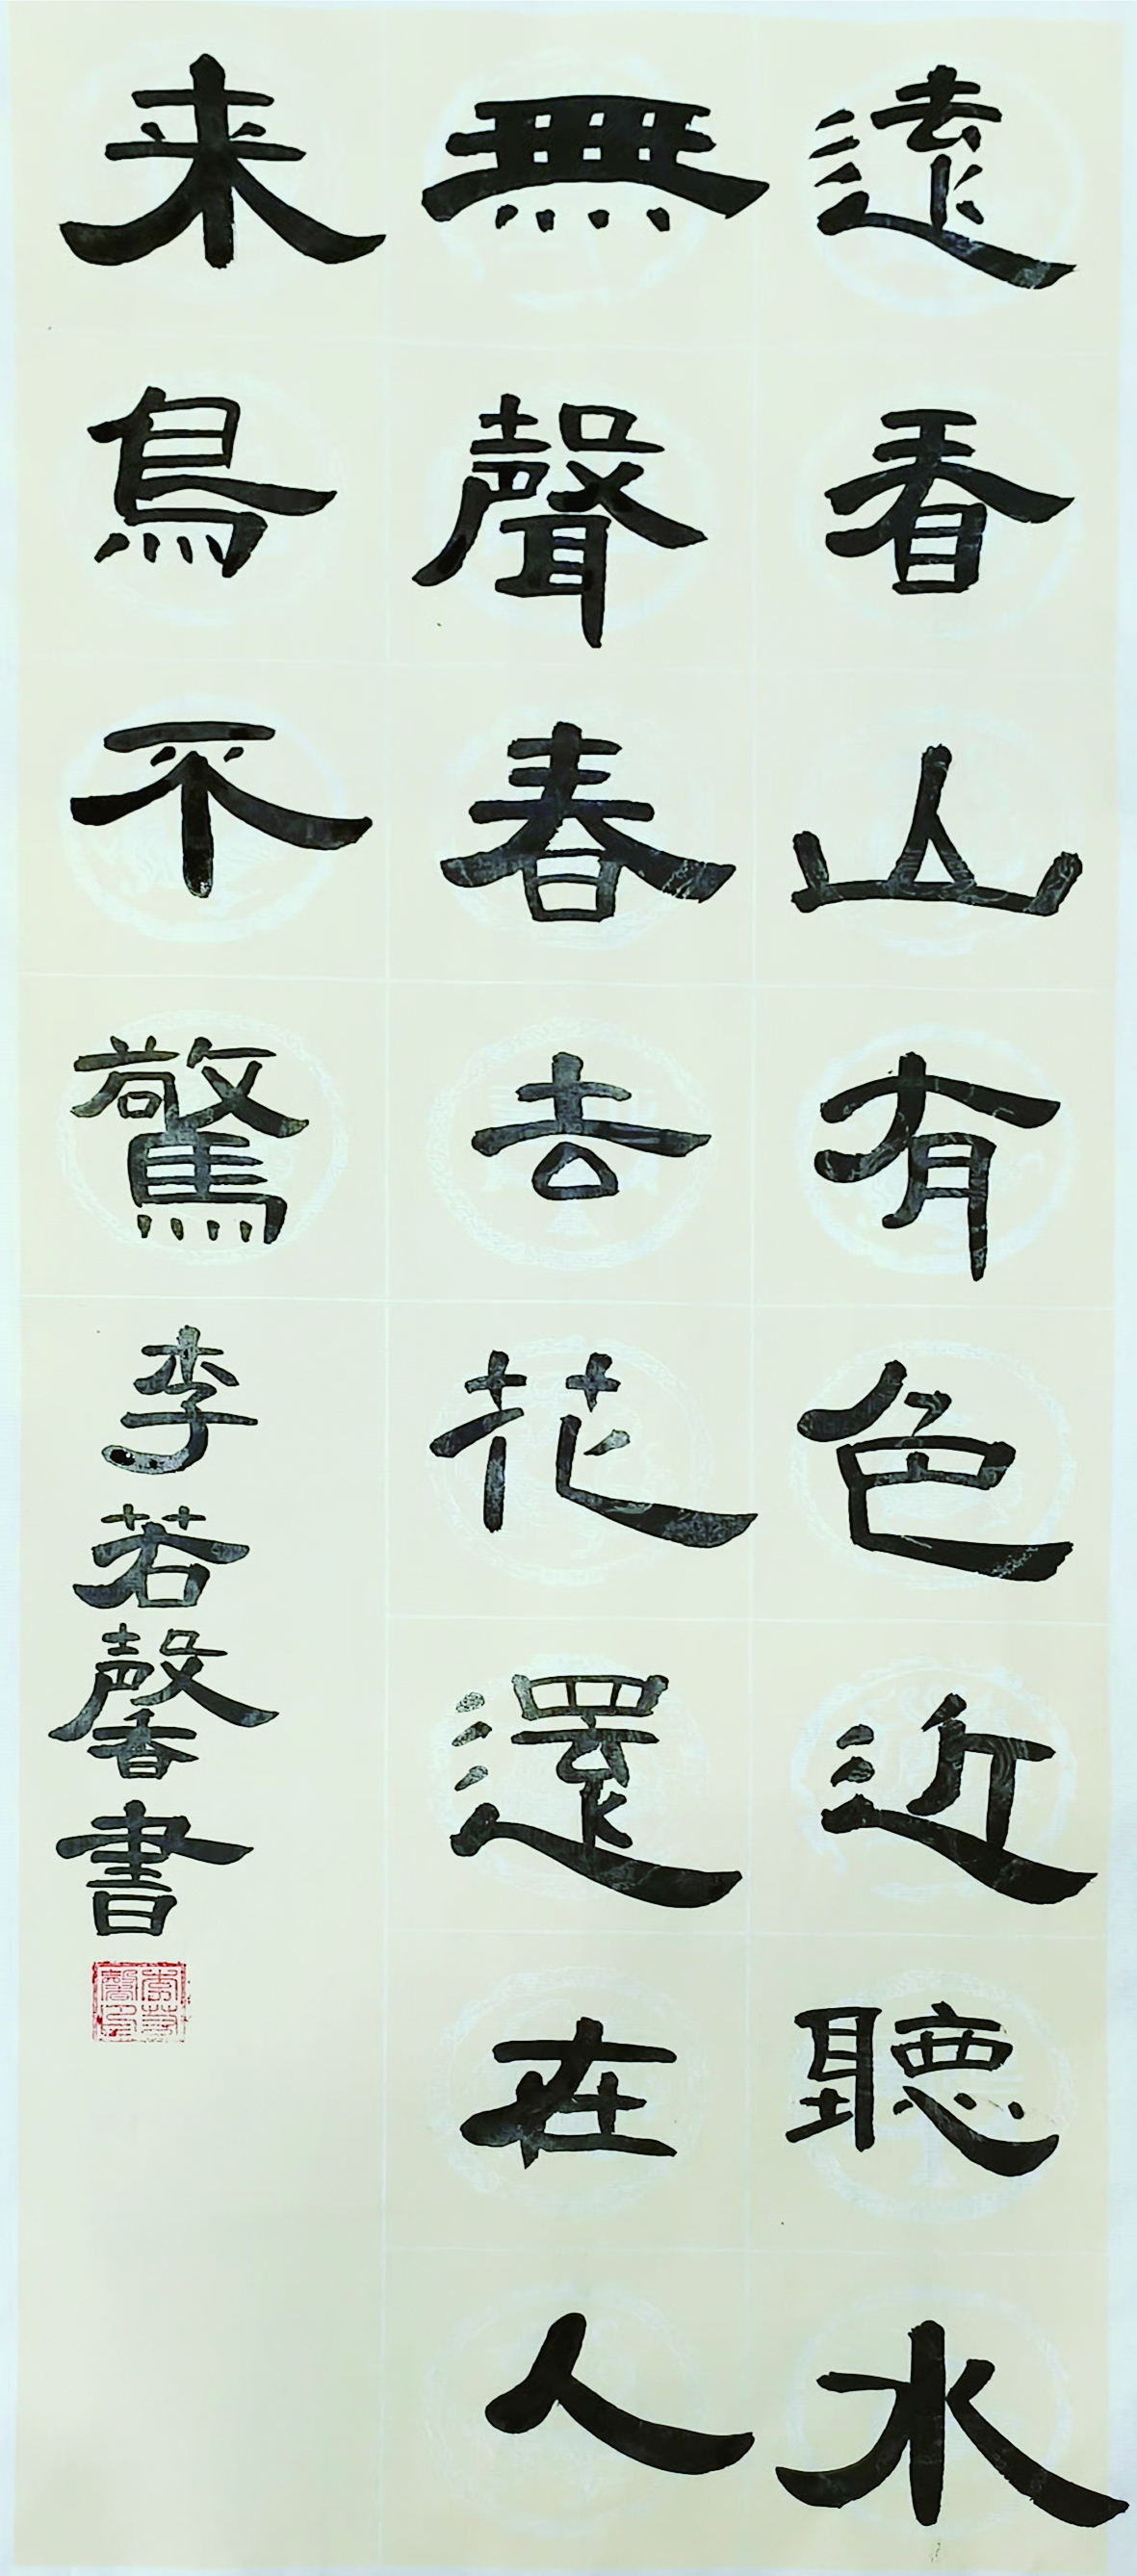 遠看山有色近聽水
無聲春去花還在人
来鳥不驚
李若馨書